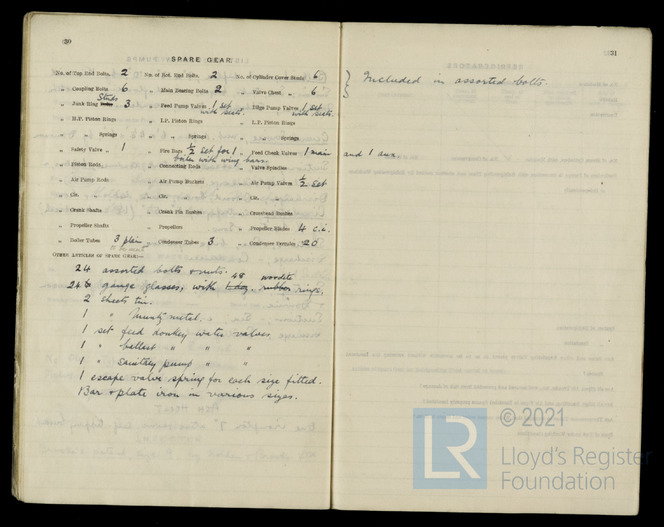 30
SPARE GEAR.
No. of Top End Bolts, 2 No. of Bot. End Bolts, 2 No. of Cylinder Cover Studs 6
„ Coupling Bolts 6 „ Main Bearing Bolts 2 „ Valve Chest „ 6
„ Junk Ring Studs 3 „ Feed Pump Valves 1 set with seats. „ Bilge Pump Valves 1 set with seats.
„ H.P. Piston Rings „ I.P. Piston Rings „ L.P. Piston Rings
„ „ Springs „ „ Springs „ „ Springs
„ Safety Valve „ 1 „ Fire Bars ½ set for 1 boiler with wing bars. „ Feed Check Valves 1 main
„ Piston Rods „ Connecting Rods „ Valve Spindles
„ Air Pump Rods „ Air Pump Buckets „ Air Pump Valves ½ set
„ Cir. „ „ Cir. „ „ Cir. „
„ Crank Shafts „ Crank Pin Bushes „ Crosshead Bushes
„ Propeller Shafts „ Propellers „ Propeller Blades 4 c.i.
„ Boiler Tubes 3 plain „ Condenser Tubes 3 „ Condenser Ferrules 20
OTHER ARTICLES OF SPARE GEAR:—
24 assorted bolts & nuts.
24 gauge glasses, with 48 woodite rings.
2 sheets tin.
1 „ Muntz metal.
1 set feed donkey water valves.
1 „ ballast „ „ „
1 „ sanitary pump „ „
1 escape valve spring for each size fitted.
Bar & plate iron in various sizes.
31
Included in assorted bolts.
and 1 aux.
© 2021
LR
Lloyd's Register
Foundation